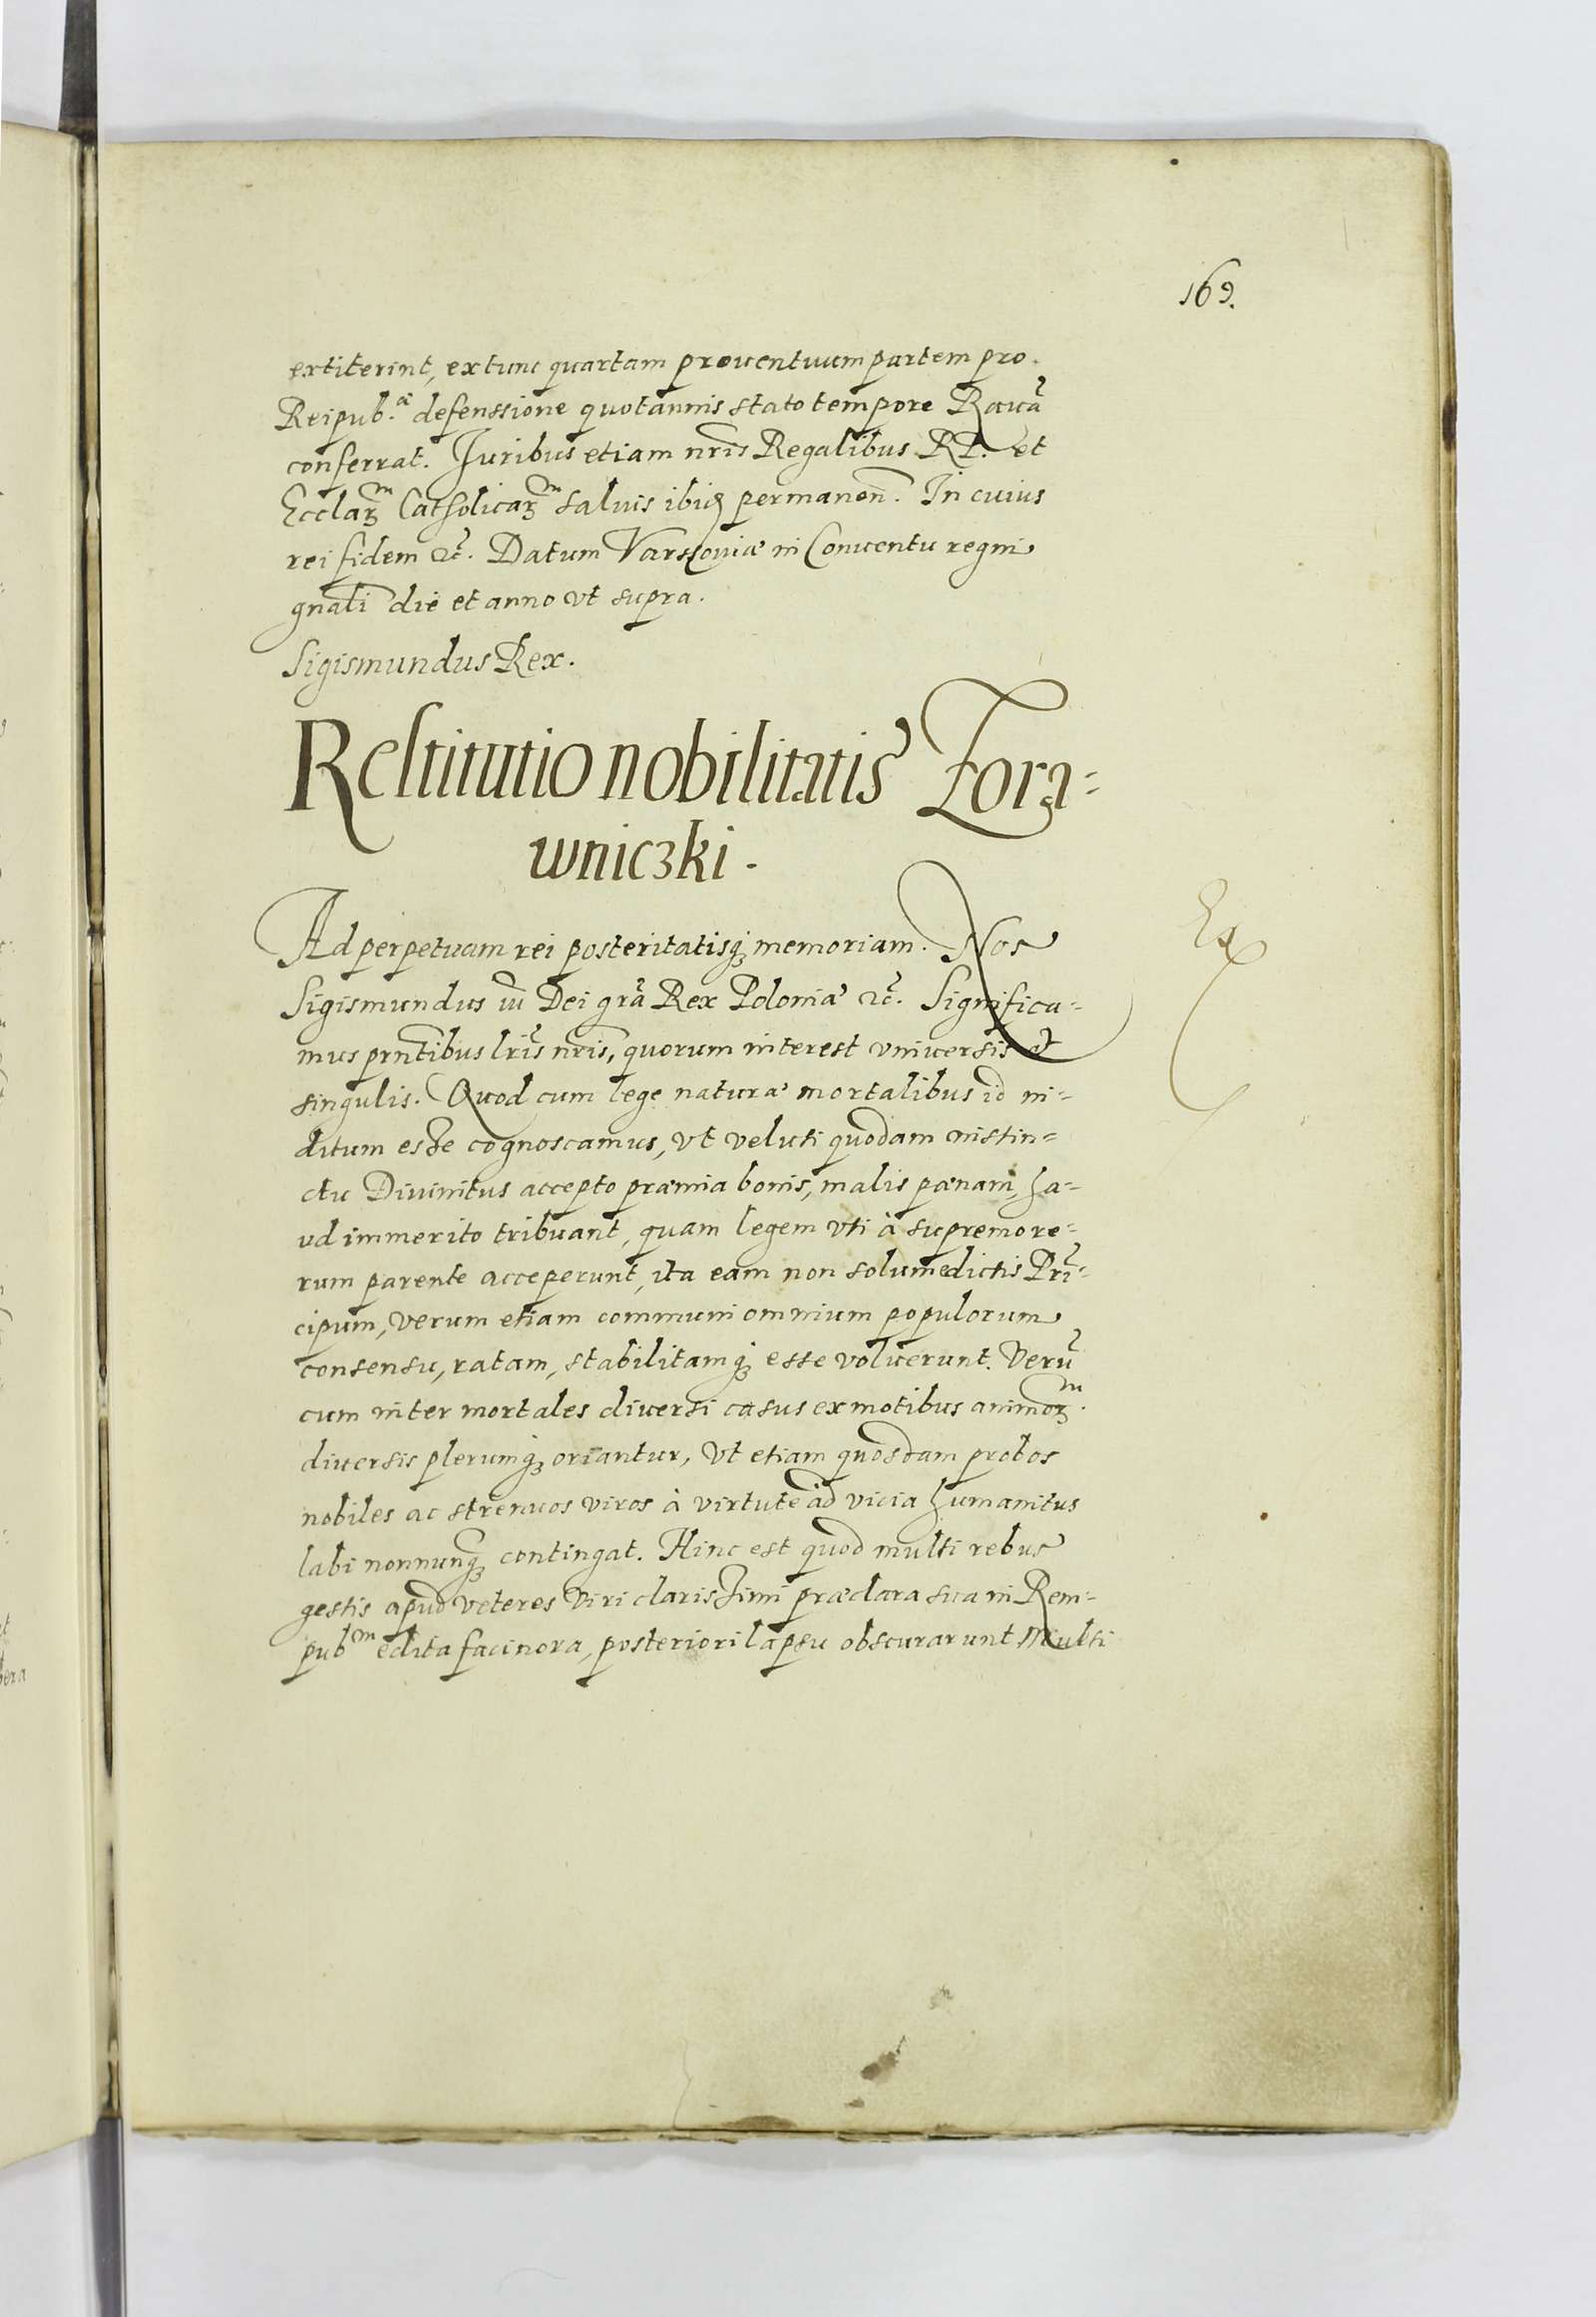 169.
extiterint, ex tunc quartam prouentuum partem pro
Reipub.ae defenssione quotannis stato tempore Rauã
conferrat. Juribus etiam nr̃is Regalibus RP. et
Ecclarꝫm Catholicarꝫm saluis ibiqꝫ permanen̄. In cuius
rei fidem ꝛc̃. Datum Varssouiæ in Conuentu regni
gnali die et anno vt supra.
Sigismundus Rex.
Restitutio nobilitatis Zora=
wniczki.
Ad perpetuam rei posteritatisqꝫ memoriam. Nos
Ex
Sigismundus iii Dei grã Rex Poloniæ ꝛc̃. Significa=
mus prñtibus lr̃is nr̃is, quorum interest vniuersis et
singulis. Quod cum lege naturæ mortalibus id in=
ditum esse cognoscamus, vt veluti quodam instin=
ctu Diuinitus accepto præmia bonis, malis pænam, ha=
ud immerito tribuant, quam legem vti à supremo re=
rum parente acceperunt, ita eam non solum edictis Prĩ=
cipum, verum etiam communi omnium populorum
consensu, ratam, stabilitamqꝫ esse voluerunt. Verũ
cum inter mortales diuersi casus ex motibus animorꝫm
diuersis plerumqꝫ oriantur, Vt etiam quosdam probos
nobiles ac strenuos viros à virtute ad vicia humanitus
labi nonnunqꝫ contingat. Hinc est quod multi rebus
gestis apud veteres Viri clarissimi præclara sua in Rem=
pubm edita facinora, posteriori lapsu obscurarunt Multi